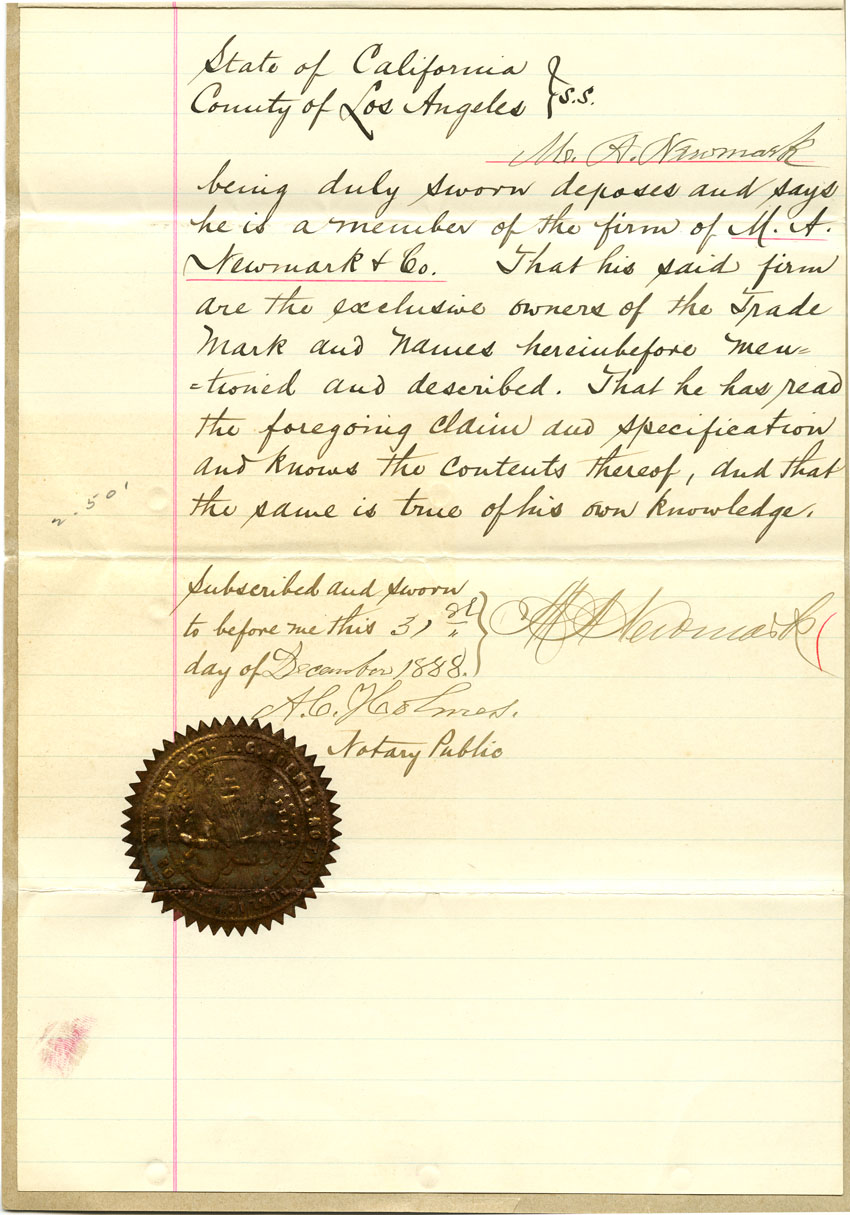 State of California
County of Los Angeles } s.s.
M. A. Newmark
being duly sworn deposes and says
he is a member of the firm of M. A.
Newmark & Co. That his said firm
are the exclusive owners of the Trade
Mark and Names hereinbefore men=
=tioned and described. That he has read
the foregoing claim and specification
and knows the contents thereof, and that
the same is true of his own knowledge.
2.50
Subscribed and sworn
to before me this 31st
day of December 1888. }
M A Newmark
A. C. Holmes.
Notary Public
A. C. HOLMES. NOTARY PUBLIC